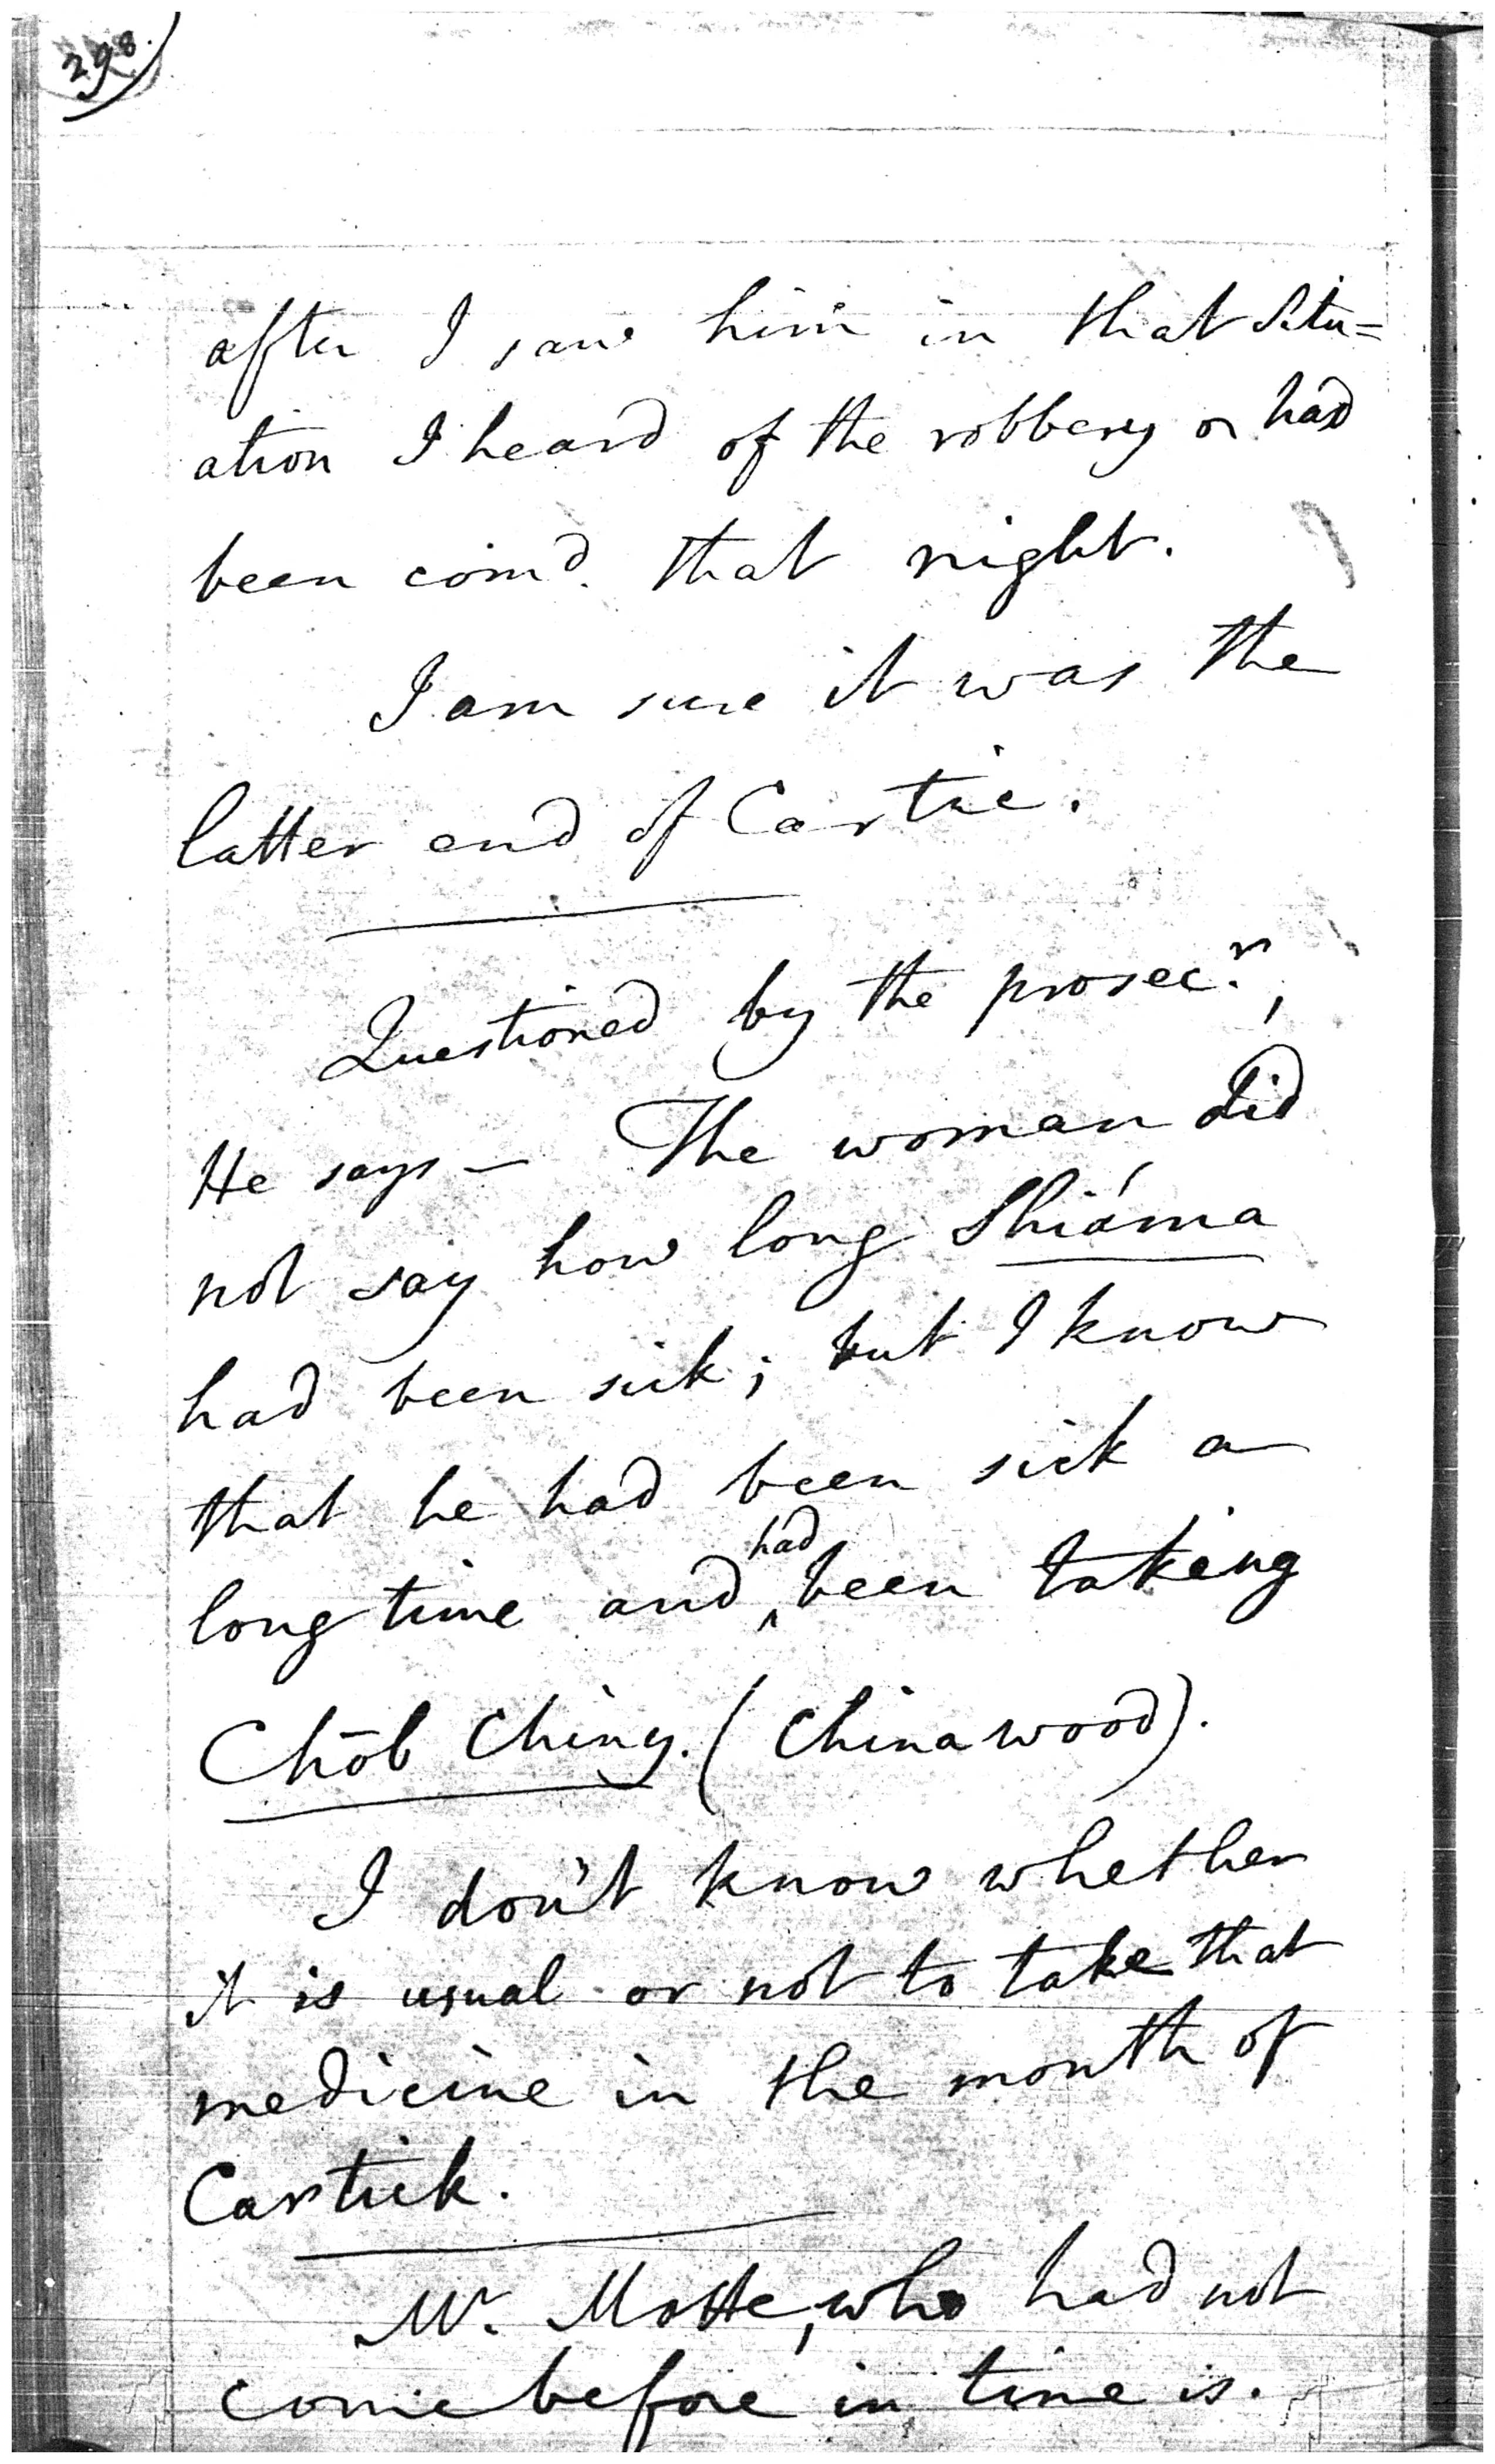 298.
after I saw him in that Situ=
ation I heard of the robbery or had
been com̄d. that night.
I am sure it was the
latter end of Cartic.
Questioned by the prosec.r,
He says — The woman did
not say how long Shiáma
had been sick; but I know
that he had been sick a
long time and ^had been taking
Chōb Chiny. (China wood).
I don't know whether
it is usual or not to take that
medicine in the month of
Cartick.
Mr. Motte, who had not
come before in time is.